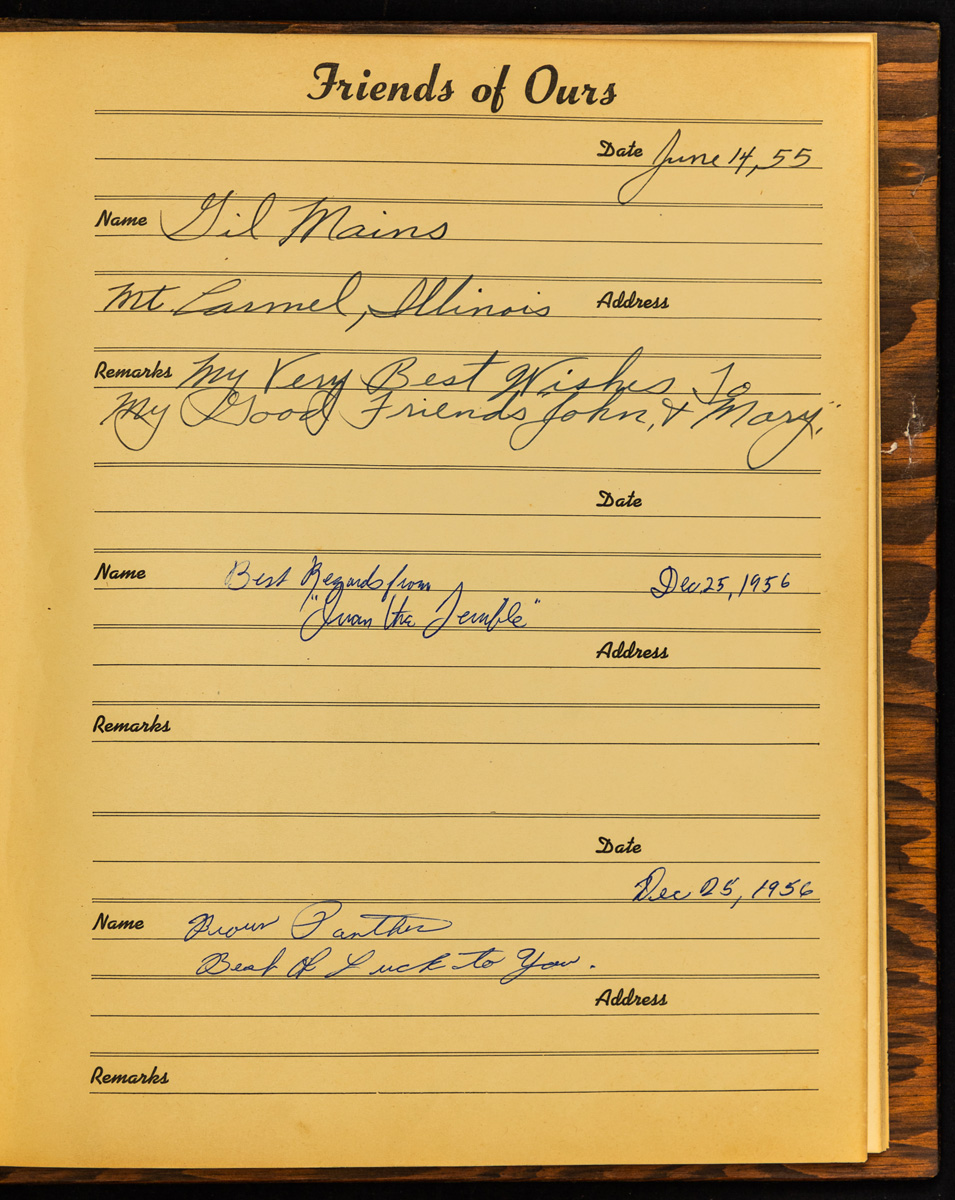 Friends of Ours
Date June 14, 55
Name Gil Mains
Mt Carmel, Illinois Address
Remarks My Very Best Wishes To
My Good Friends John, & Mary."
Date
Name Best Regards from Dec. 25, 1956
"Ivan the Terrible"
Address
Remarks
Date
Dec 25, 1956
Name Brown Panther
Best Of Luck to You.
Address
Remarks